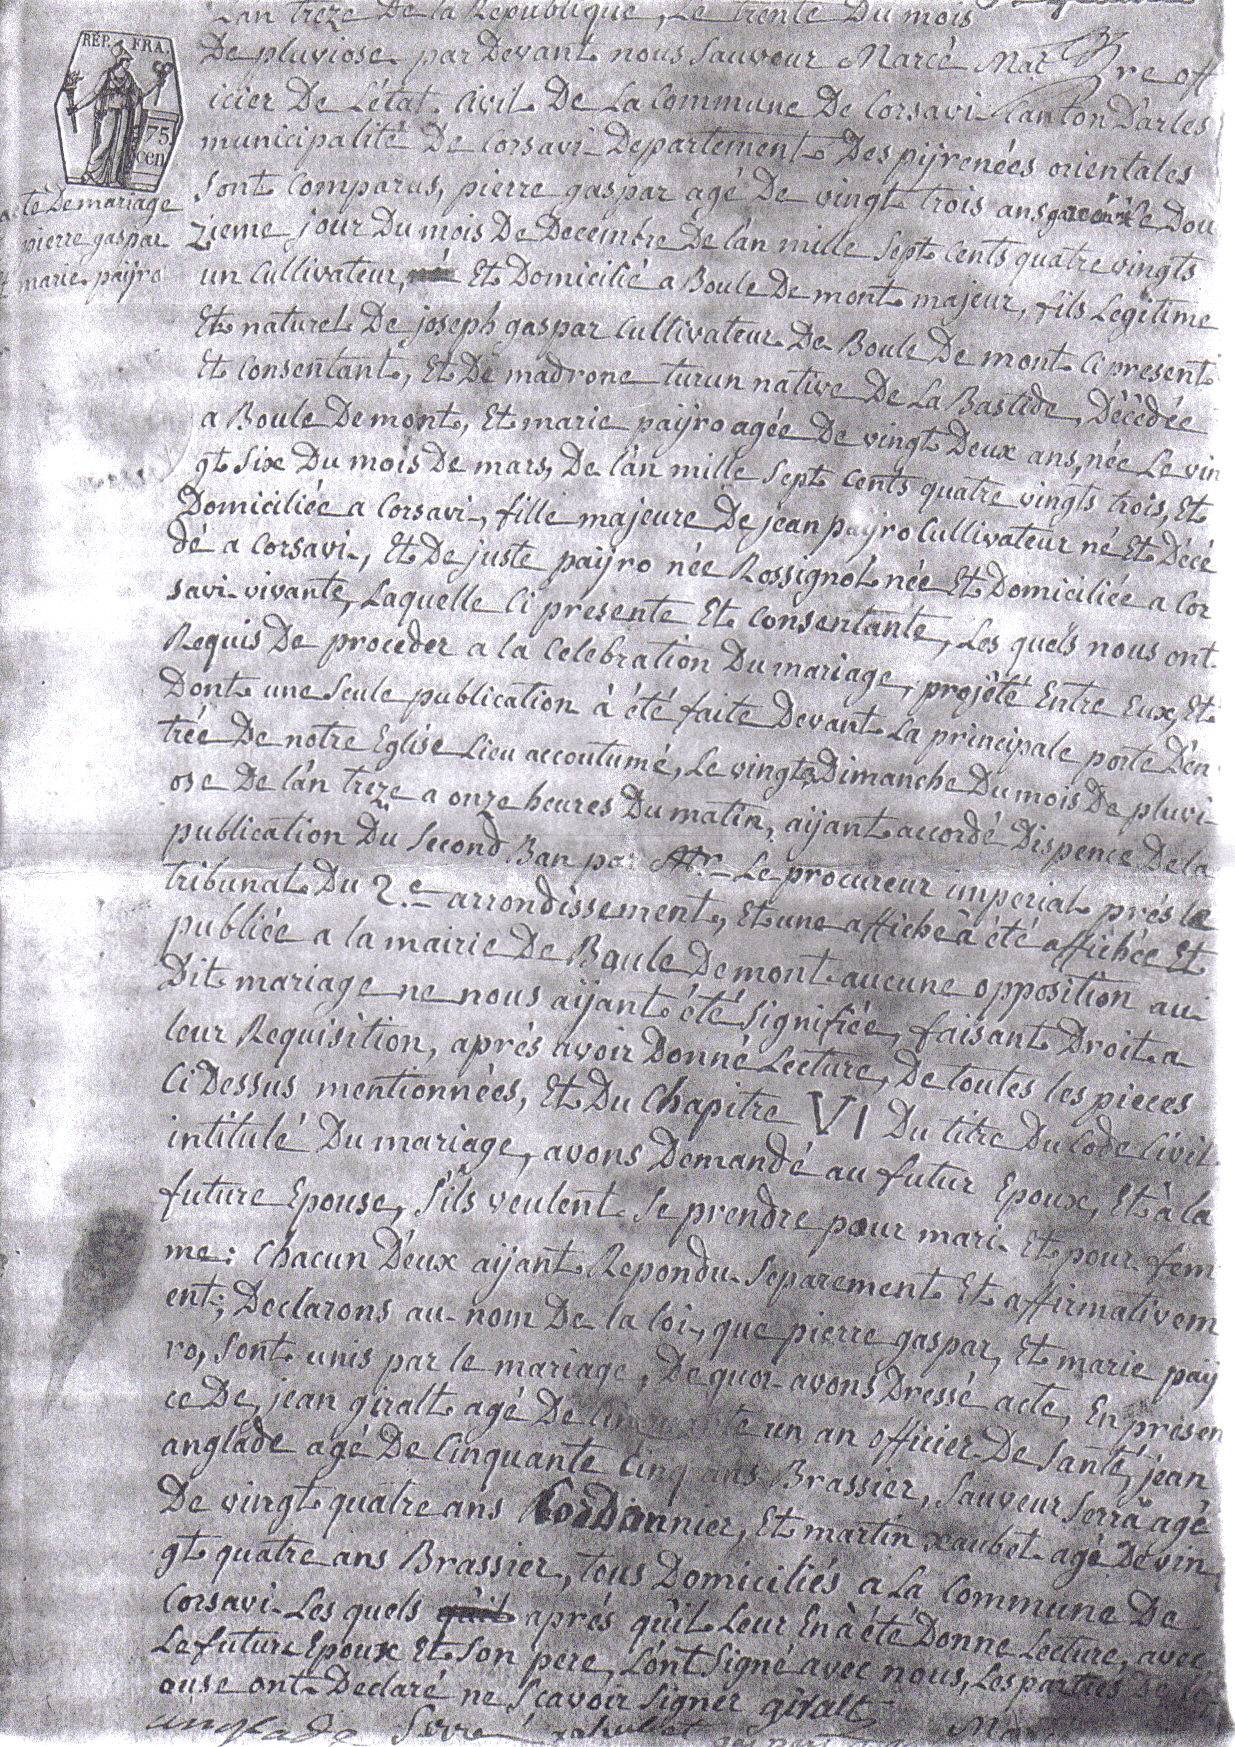 L'an treze De la Republique, Le trente Du mois
De pluviose par Devant nous Sauveur Marcé Mai re off
icier De L'état Civil De La Commune De Corsavi Canton D'arles
municipalité De Corsavi Departement Des pÿrenées orientales
Sont Comparus, pierre gaspar agé De vingt trois ans Le Dou
zieme jour Du mois De Decembre De l'an mille Sept Cents quatre vingts
un Cullivateur, Et Domicilié a Boule De mont majeur, fils Légitime
Et naturel De joseph gaspar Cultivateur De Boule De mont Ci present
Et Consentant, Et De madrone turun native De La Bastide, Dècèdée
a Boule De mont, Et marie paÿro agée De vingt Deux ans, née Le vin
gt Six Du mois De mars, De l'an mille Sept Cents quatre vingts trois, Et
Domiciliée a Corsavi, fille majeure De jean paÿro Cullivateur né Et Décé
dé a Corsavi, Et De juste paÿro née Rossignol née Et Domiciliée a Cor
savi vivante, Laquelle Ci presente Et Consentante, Les quels nous ont
Requis De proceder a la Celebration Du mariage, projété Entre Eux, Et
Dont une Seule publication à été faite Devant La principale porte D'en
trée De notre Eglise Lieu accoutumé, Le vingt Dimanche Du mois De pluvi
ose De l'an treze a onze heures Du matin, aÿant accordé Dispence De la
publication Du Second Ban par Mr. Le procureur imperial prés le
tribunal Du 2.e arrondissement, Et une affiche à été affichée Et
publiée a la mairie De Boule De mont aucune opposition au
Dit mariage ne nous aÿant été Signifiée, faisant Droit a
leur Requisition, aprés avoir Donné Lecture, De toutes les pieces
Ci Dessus mentionnées, Et Du Chapitre VI Du titre Du Code Civil
intitulé Du mariage, avons Demandé au futur Epoux, Et à la
future Epouse, S'ils veulent Se prendre pour mari Et pour fem
me: Chacun D'eux aÿant Repondu Separement Et affirmativem
ent; Declarons au nom De la loi, que pierre gaspar, Et marie paÿ
ro, Sont unis par le mariage, De quoi avons Dressé acte, En presen
ce De, jean giralt agé De un an officier De Santé, jean
anglade agé De Cinquante Cinq ans Brassier, Sauveur Serra agé
De vingt quatre ans Cordonnier, Et martin xaubet agé De vin
gt quatre ans Brassier, tous Domiciliés a La Commune De
Corsavi Les quels aprés qu'il Leur En à été Donne Lecture, avec
Le futur Epoux Et Son pere, L'ont Signé avec nous, Les parties De
ouse ont Declaré ne Scavoir Signer giralt
anglade Serre xaubet
RÉP. FRA.
75
cen
acte De mariage
pierre gaspar
Et marie paÿro